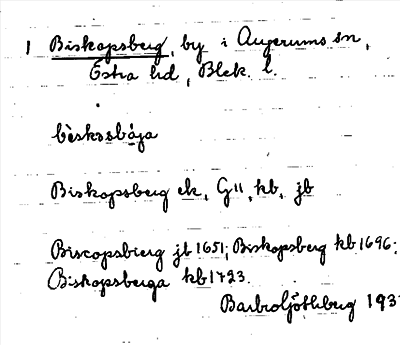 1 Biskopsberg, by i Augerums sn,
Östra hd, Blek. l.
bèskssbája
Biskopsberg ek, G11, kb, jb
Biscopsbierg jb 1651; Biskopsberg kb 1696;
Biskopsberga kb 1723.
Barbro Ljöthberg 193